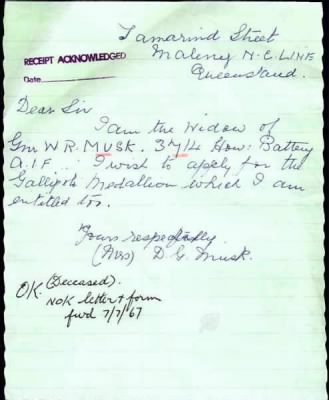 Tamarind Street
Maleny N.C. LINE
Queensland.
RECEIPT ACKNOWLEDGED
Date
Dear Sir
I am the Widow of
Gnr W R. MUSK. 3714 How: Battery
A.I.F. I wish to apply for the
Gallipoli Medallion which I am
entitled too.
Yours respectfully.
(Mrs) D E Musk.
OK. (Deceased).
NOK letter + form
fwd 7/7/67